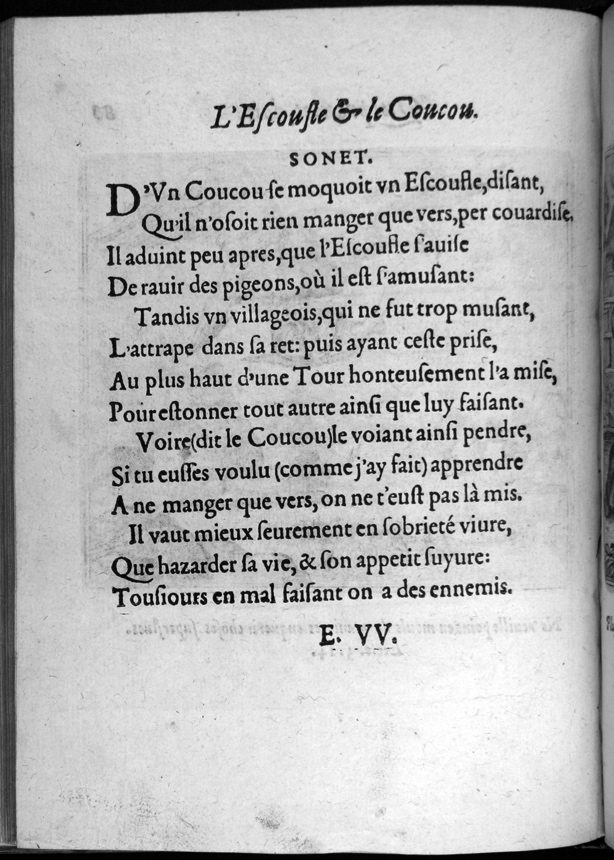 L'Eſcouſle & le Coucou.
SONET.
D'Vn Coucou ſe moquoit vn Eſcoufle, diſant,
Qu'il n'oſoit rien manger que vers, per couardiſe.
Il aduint peu apres, que l'Eſcoufle ſ'auiſe
De rauir des pigeons, où il eſt ſ'amuſant:
Tandis vn villageois, qui ne fut trop muſant,
L'attrape dans ſa ret: puis ayant ceſte priſe,
Au plus haut d'une Tour honteuſement l'a miſe,
Pour eſtonner tout autre ainſi que luy faiſant.
Voire (dit le Coucou) le voiant ainſi pendre,
Si tu euſſes voulu (comme j'ay fait) apprendre
A ne manger que vers, on ne t'euſt pas là mis.
Il vaut mieux ſeurement en ſobrieté viure,
Que hazarder ſa vie, & ſon appetit ſuyure:
Touſiours en mal faiſant on a des ennemis.
E. VV.